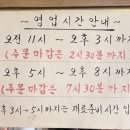 ~ 영 업 시 간 안 내 ~
오전 11시 ~ 오후 3시 까지
(주문마감은 2시30분 까지
오후 5시 ~ 오후 8시 까지
(주문마감은 7시30분 까지
오후 3시~5시까지는 재료준비시간 입